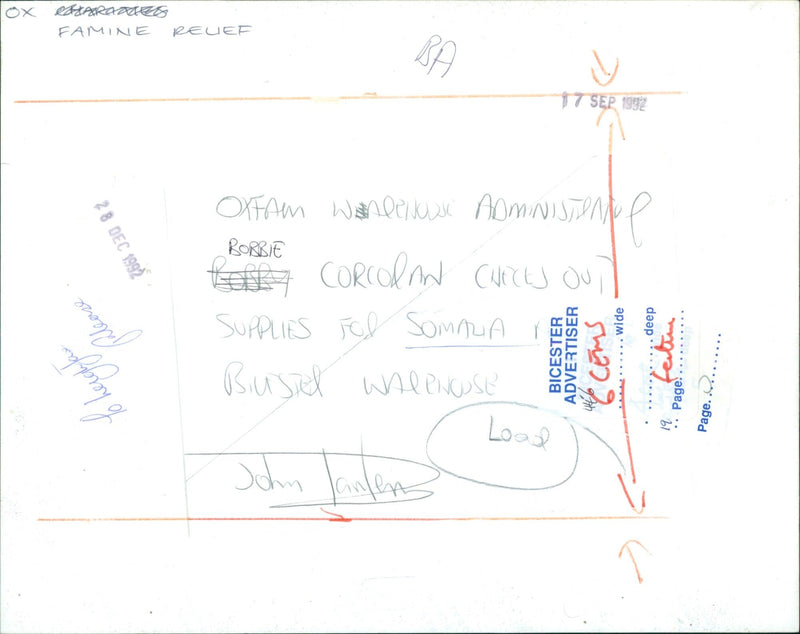 OX
FAMINE RELIEF
BA
17 SEP 1992
28 DEC 1992
OXFAM WAREHOUSE ADMINISTRATOR
BOBBIE
CORCORAN CHECKS OUT
SUPPLIES FOR SOMALIA
BICESTER WAREHOUSE
Load
John
BICESTER
ADVERTISER
6 CEMS wide
deep
Page
Page